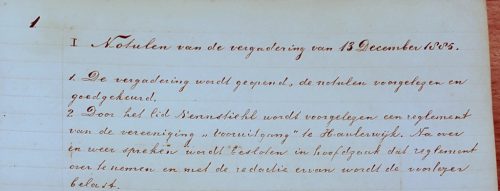 1
I Notulen van de vergadering van 13 December 1885.
1. De vergadering wordt geopend, de notulen voorgelezen en
goedgekeurd.
2. Door het lid wordt voorgelezen een reglement
van de vereeniging „Vooruitgang" te Haulerwijk. Na over
en weer spreken wordt besloten in hoofdzaak dat reglement
over te nemen en met de redactie ervan wordt de voorlezer
belast.